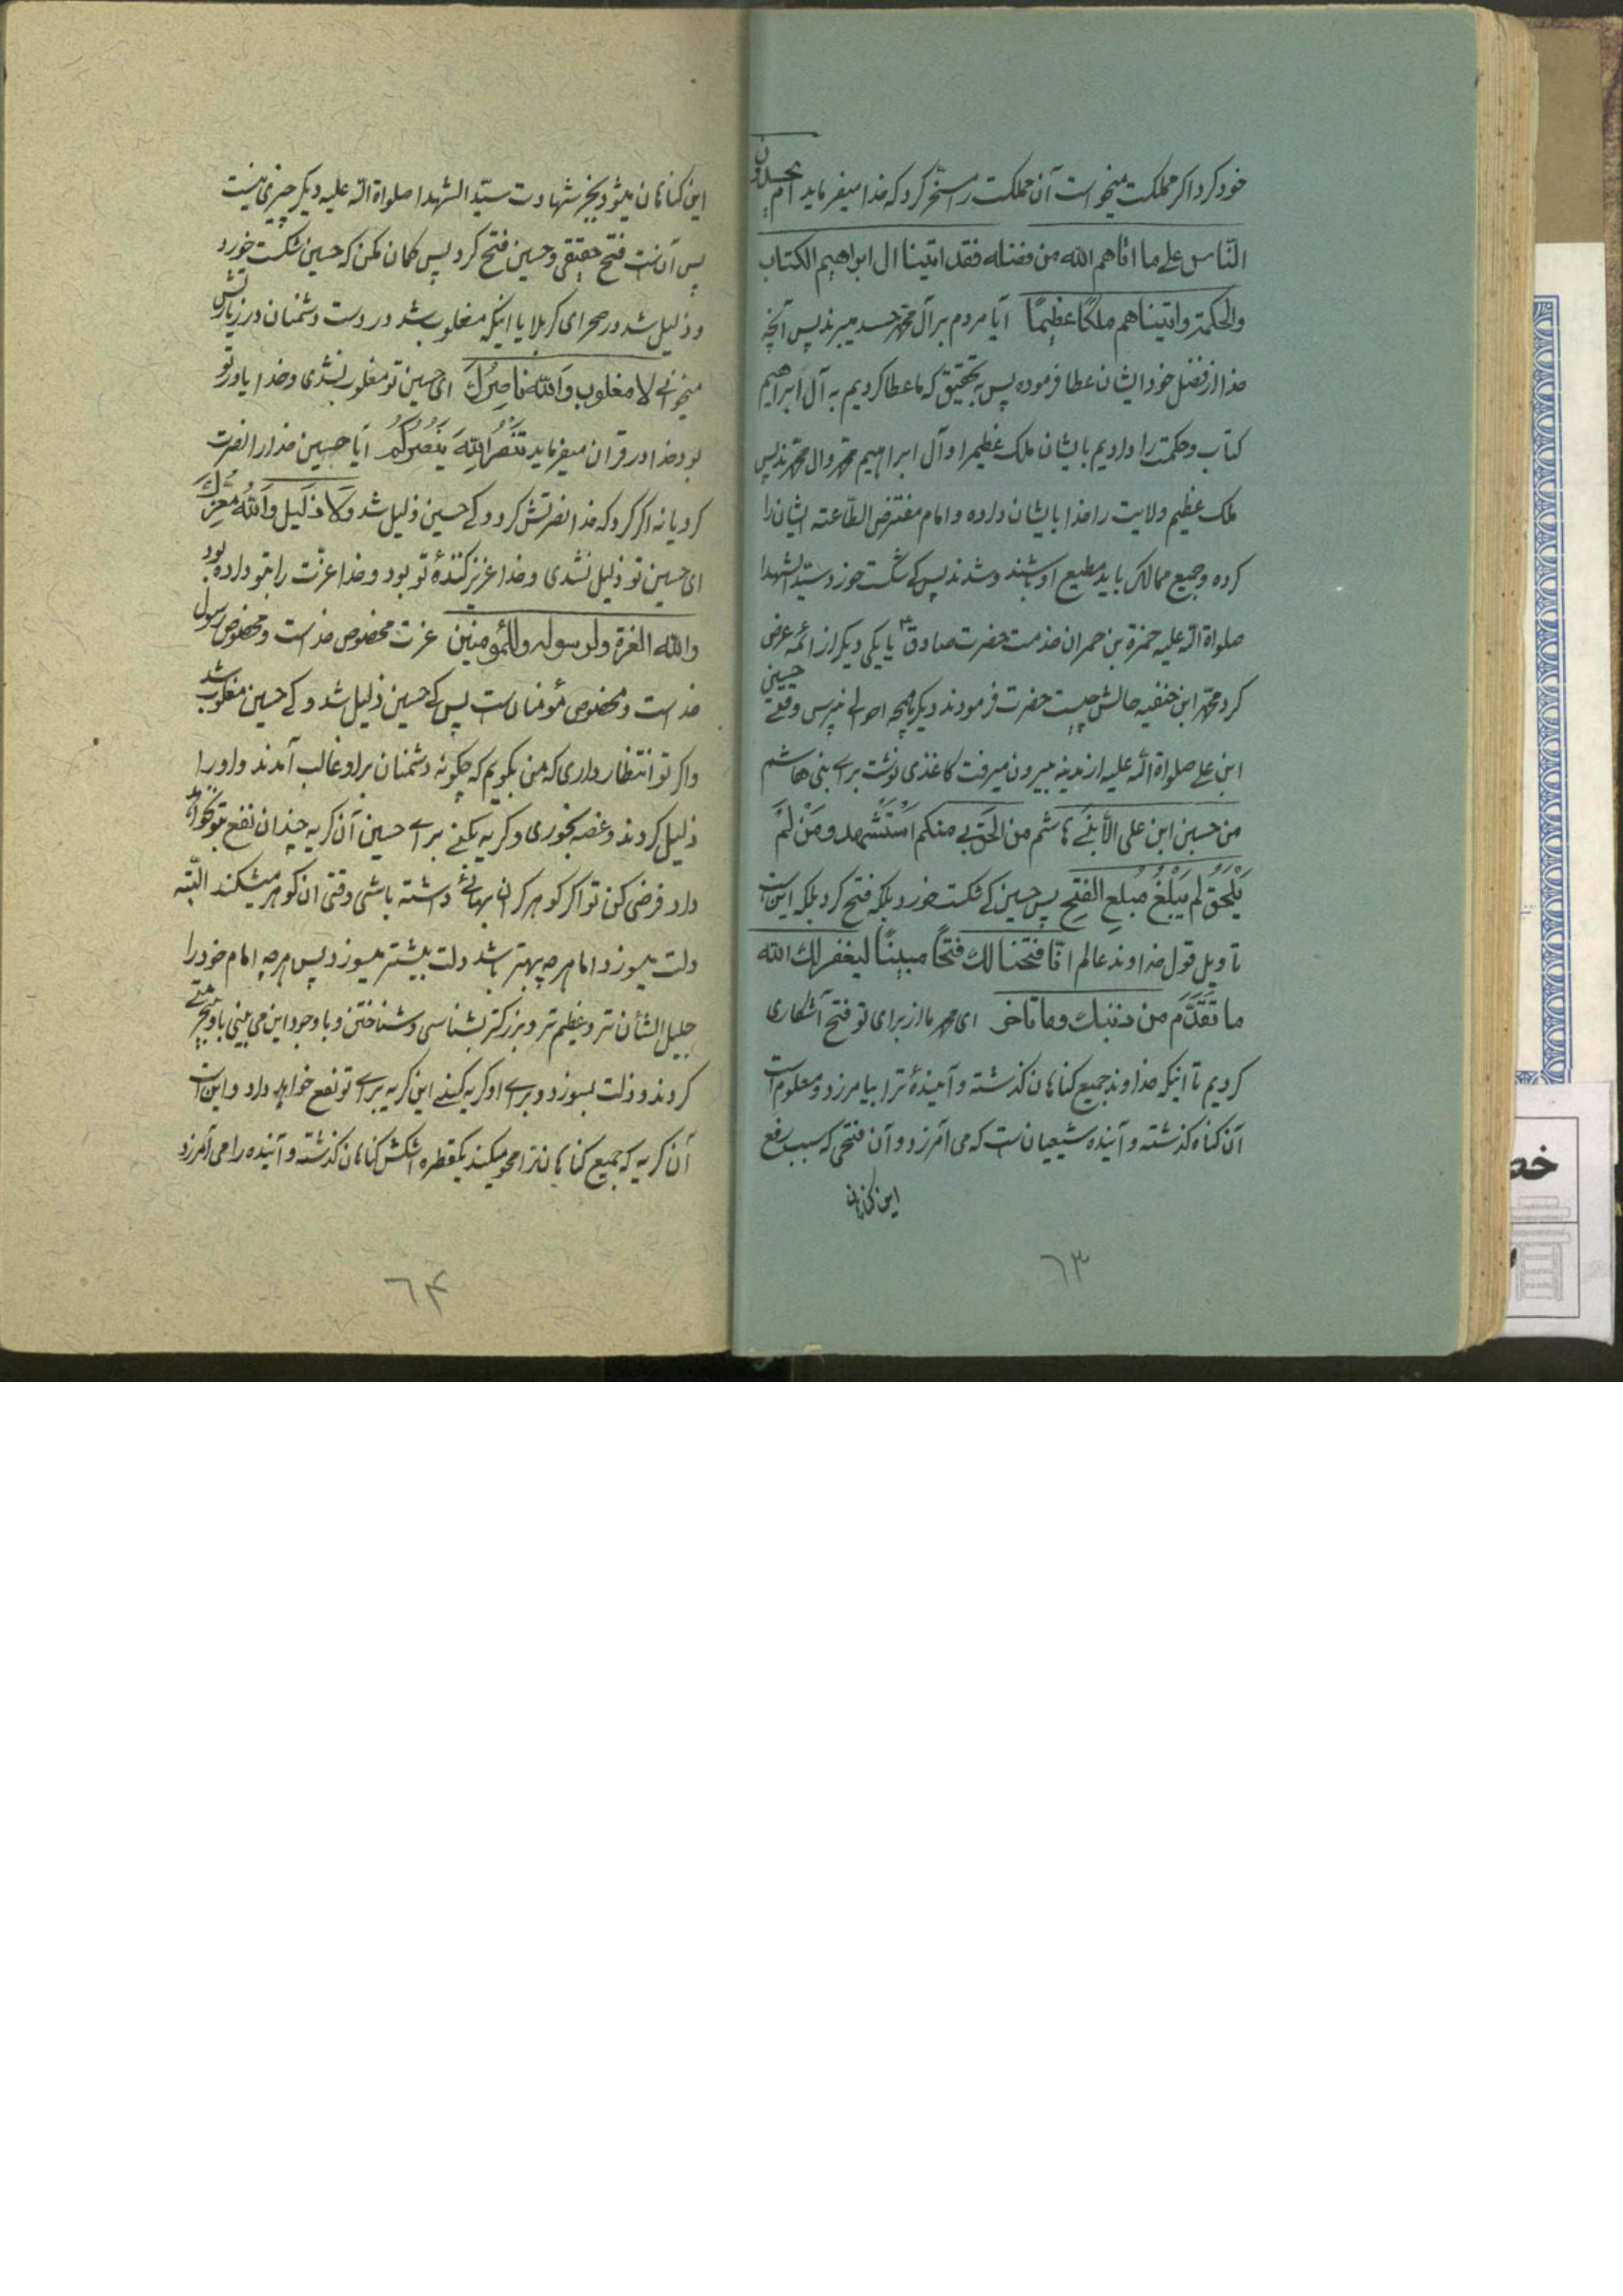 خود کرد اگر مملکت میخواست آن مملکت را مسخّر کرد که خدا میفرماید ام یحسدون
النّاس علی ما اتاهم الله من فضله فقد اتینا ال ابراهیم الکتاب
والحکمة واتیناهم ملکًا عظیمًا آیا مردم بر آل محمّد حسد میبرند پس آنچه
خدا از فضل خود ایشان عطا فرموده پس بتحقیق که ما عطا کردیم به آل ابراهیم
کتاب و حکمت را و دادیم بایشان ملک عظیمرا و آل ابراهیم محمّد وال محمّدند پس
ملک عظیم ولایت را خدا بایشان داده و امام مفترض الطّاعته ایشان را
کرده و جمیع ممالک باید مطیع او باشند و شدند پس کی شکست خورد سیّد الشهدا
صلواة الله علیه حمزة بن حمران خدمت حضرت صادق ع یا یکی دیگر از ائمه عرض
کرد محمّد ابن حنفیه حالش چیست حضرت فرمودند دیگر احوالی مپرس وقتی حسین
ابن علی صلواة الله علیه از مدینه بیرون میرفت کاغذی نوشت برای بنی هاشم
من حسین ابن علی الی بنی هاشم من الحق بی منکم استشهد و من لم
یلحق لم یبلغ مبلغ الفتح پس حسین کی شکست خورد بلکه فتح کرد بلکه این است
تأویل قول خداوند عالم انّا فتحنا لك فتحًا مبینًا لیغفر لك الله
ما تقدّم من ذنبك وما تاخر ای محمد ما از برای تو فتح آشکاری
کردیم تا اینکه خداوند جمیع گناهان گذشته و آیندهٔ ترا بیامرزد و معلوم است
آن گناه گذشته و آینده شیعیان است که می آمرزد و آن فتحی که سبب رفع
این گناهان
٦٣
این گناهان میشود بجز شهادت سیّد الشهدا صلواة الله علیه دیگر چیزی نیست
پس آن است فتح حقیقی و حسین فتح کرد پس گمان مکن که حسین شکست خورد
و ذلیل شد در صحرای کربلا یا اینکه مغلوب شد در دست دشمنان در زیارتش
میخوانی لا مغلوب والله ناصرك ای حسین تو مغلوب نشدی و خدا یاور تو
بود خدا در قران میفرماید تنصر الله ینصرکم آیا حسین خدا را نصرت
کرد یا نه اگر کرد که خدا نصرتش کرد و کی حسین ذلیل شد ولا ذلیل والله معزك
ای حسین تو ذلیل نشدی و خدا عزیز کنندهٔ تو بود و خدا عزّت را بتو داده بود
والله العزة ولرسوله وللمؤمنین عزت مخصوص خداست و مخصوص رسول
خداست و مخصوص مؤمنان است پس کی حسین ذلیل شد و کی حسین مغلوب شد
واگر تو انتظار داری که من بگویم که چگونه دشمنان بر او غالب آمدند و او را
ذلیل کردند و غصه بخوری و گریه بکنی برای حسین آن گریه چندان نفع بتو نخواهد
دارد فرض کن تو اگر گوهر گران بهائی داشته باشی وقتی ان گوهر میشکند البتّه
دلت میسوزد اما هر چه بهتر باشد دلت بیشتر میسوزد پس هر چه امام خود را
جلیل الشأن تر و عظیم تر و بزرگتر بشناسی و شناختن و با وجود این می بینی باو بیحرمتی
کردند و دلت بسوزد و برای او گریه کنی این گریه برای تو نفع خواهد داد و این است
آن گریه که جمیع گناهان ترا محو میکند یکقطره اشکش گناهان گذشته و آینده را می آمرزد
٦۴